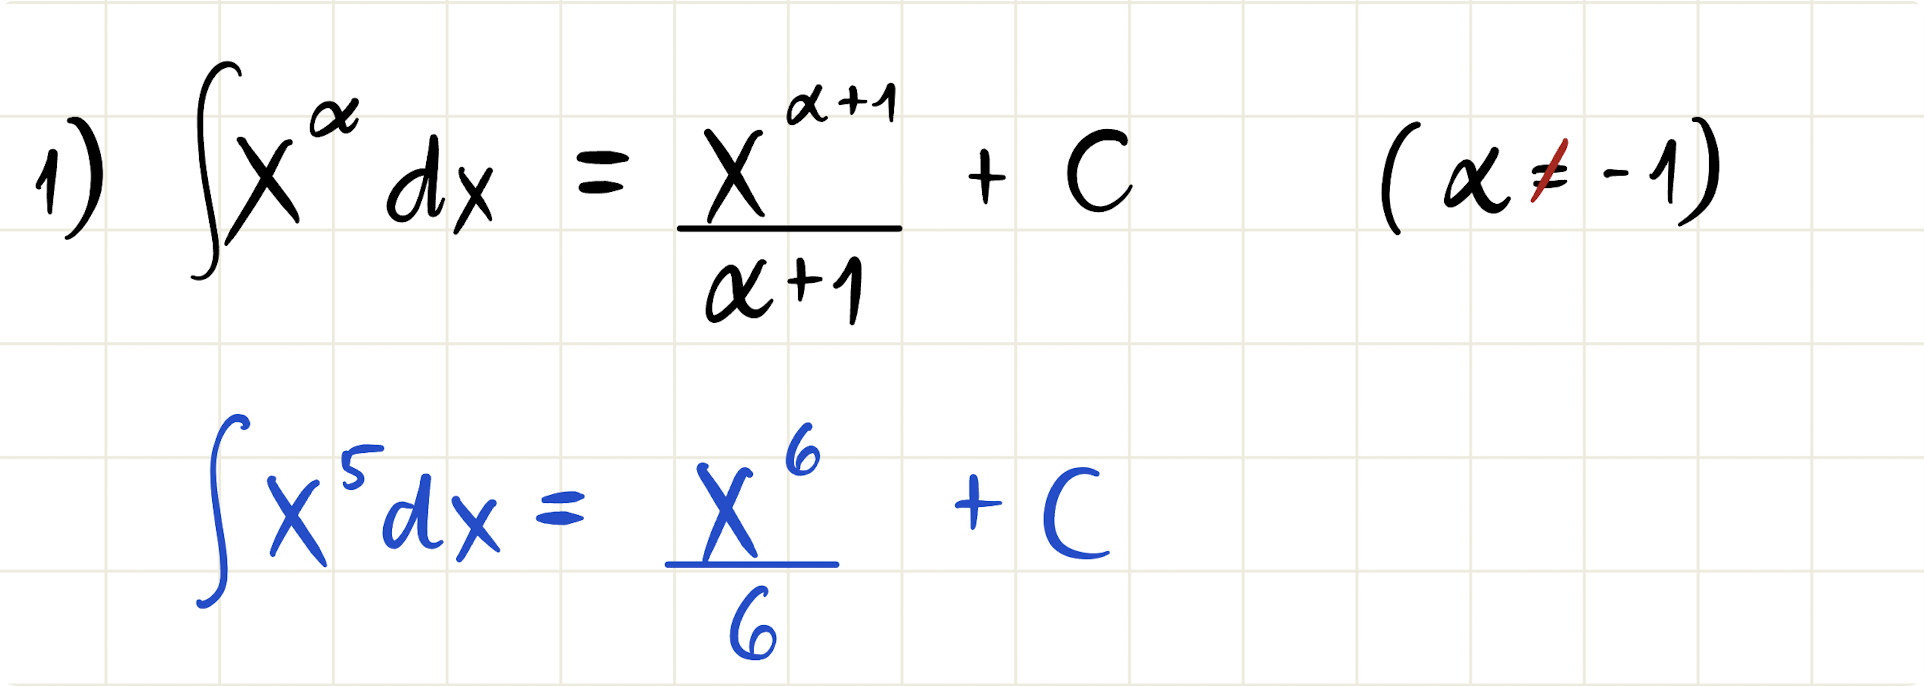 1) ∫x^α dx = x^(α+1)/(α+1) + C (α ≠ -1)
∫x^5 dx = x^6/6 + C